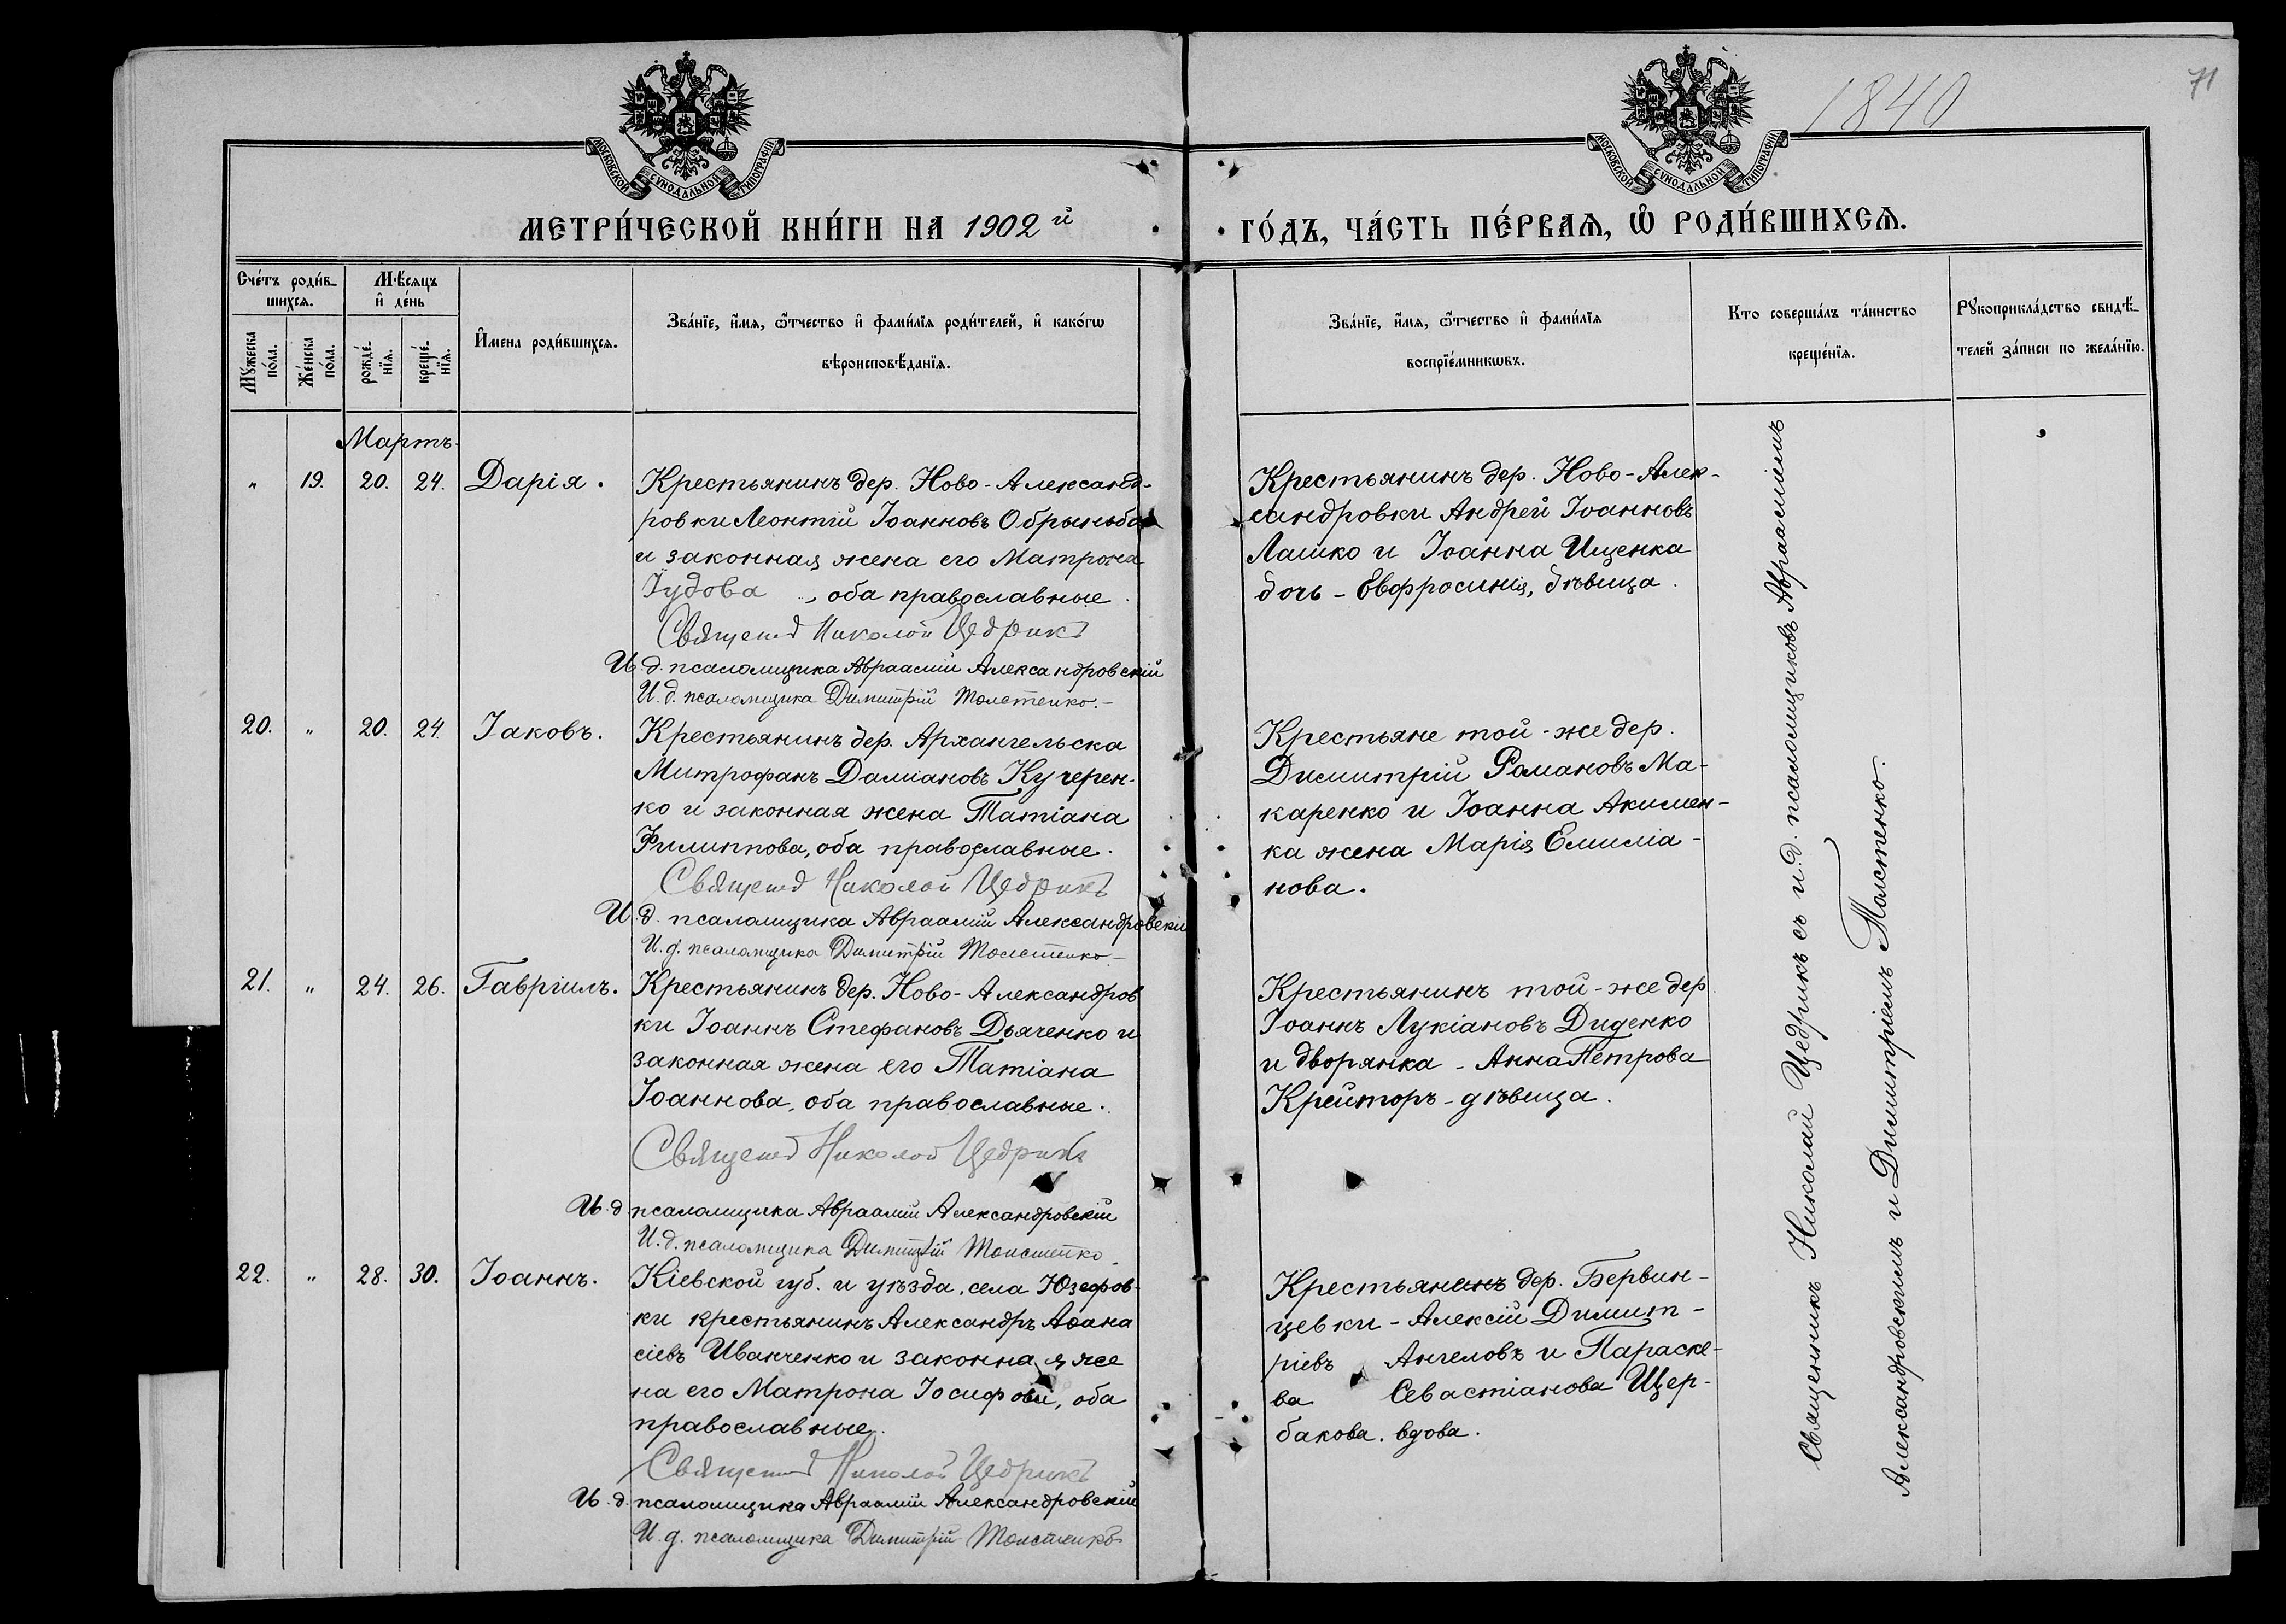 1840
71
МОСКОВСКОЙ СѴНОДАЛЬНОЙ ТИПОГРАФІИ
МОСКОВСКОЙ СѴНОДАЛЬНОЙ ТИПОГРАФІИ
МЕТРИ́ЧЕСКОЙ КНИ́ГИ НА 1902й
ГО́ДЪ, ЧА́СТЬ ПЕ́РВАѦ, Ѡ҆ РОДИ́ВШИХСѦ.
Сче́тъ роди́в-
шихсѧ.
Мѣ́сѧцъ
и҆ де́нь
Мꙋ́жеска
по́ла.
Же́нска
по́ла.
рожде́-
нїѧ.
креще́-
нїѧ.
И҆мена роди́вшихсѧ.
Зва́нїе, и҆́мѧ, ѻ҆́тчество и҆ фами́лїѧ роди́телей, и҆ како́гѡ
вѣроисповѣ́данїѧ.
Зва́нїе, и҆́мѧ, ѻ҆́тчество и҆ фами́лїѧ
воспрїе́мникѡвъ.
Кто соверша́лъ та́инство
креще́нїѧ.
Рꙋкоприкла́дство свидѣ́-
телей за́писи по жела́нїю.
Мартъ.
„ 19. 20. 24. Дарія.
Крестьянинъ дер. Ново-Александ-
ровки Леонтій Іоанновъ Обрыньба
и законная жена его Матрона
Іудова, оба православные.
Священ Николай Цедрикъ
И.д. псаломщика Авраамій Александровскій
И.д. псаломщика Димитрій Толстенко.-
Крестьянинъ дер. Ново-Алек-
сандровки Андрей Іоанновъ
Лашко и Іоанна Ищенка
дочь - Евфросинія, дѣвица.
20. „ 20. 24. Іаковъ.
Крестьянинъ дер. Архангельска
Митрофанъ Даміановъ Кучерен-
ко и законная жена Татіана
Филиппова, оба православные.
Священ Николай Цедрикъ
И.д. псаломщика Авраамій Александровскій
И.д. псаломщика Димитрій Толстенко-
Крестьяне той-же дер.
Димитрій Романовъ Ма-
каренко и Іоанна Акимен-
ка жена Марія Емиліа-
нова.
21. „ 24. 26. Гавріилъ.
Крестьянинъ дер. Ново-Александров
ки Іоаннъ Стефановъ Дьяченко и
законная жена его Татіана
Іоаннова, оба православные.
Священ Николай Цедрикъ
И.д. псаломщика Авраамій Александровскій
И.д. псаломщика Димитрій Толстенко.
Крестьянинъ той-же дер.
Іоаннъ Лукіановъ Диденко
и дворянка - Анна Петрова
Крейторъ - дѣвица.
22. „ 28. 30. Іоаннъ.
Кіевской губ. и уѣзда, села Юзефов-
ки крестьянинъ Александръ Аѳана
сіевъ Иванченко и законная же
на его Матрона Іосифова, оба
православные.
Священ Николай Цедрикъ
И.д. псаломщика Авраамій Александровскій
И.д. псаломщика Димитрій Толстенко
Крестьянинъ дер. Бервин-
цевки - Алексій Димит-
ріевъ Ангеловъ и Параске-
ва Севастіанова Щер-
бакова, вдова.
Священникъ Николай Цедрикъ съ и.д. псаломщиковъ Авраамiемъ
Александровскимъ и Димитріемъ Толстенко.